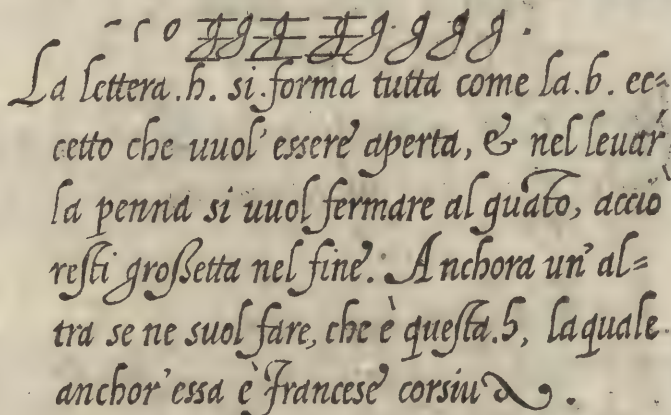 - r o g g g g g g g .
La lettera .h. si forma tutta come la .b. ec=
cetto che uuol' essere aperta, & nel leuar
la penna si uuol fermare al quãto, acciò
resti großetta nel fine. Anchora un' al=
tra se ne suol fare, che è questa .h, laquale
anchor' essa è Francese corsiua.